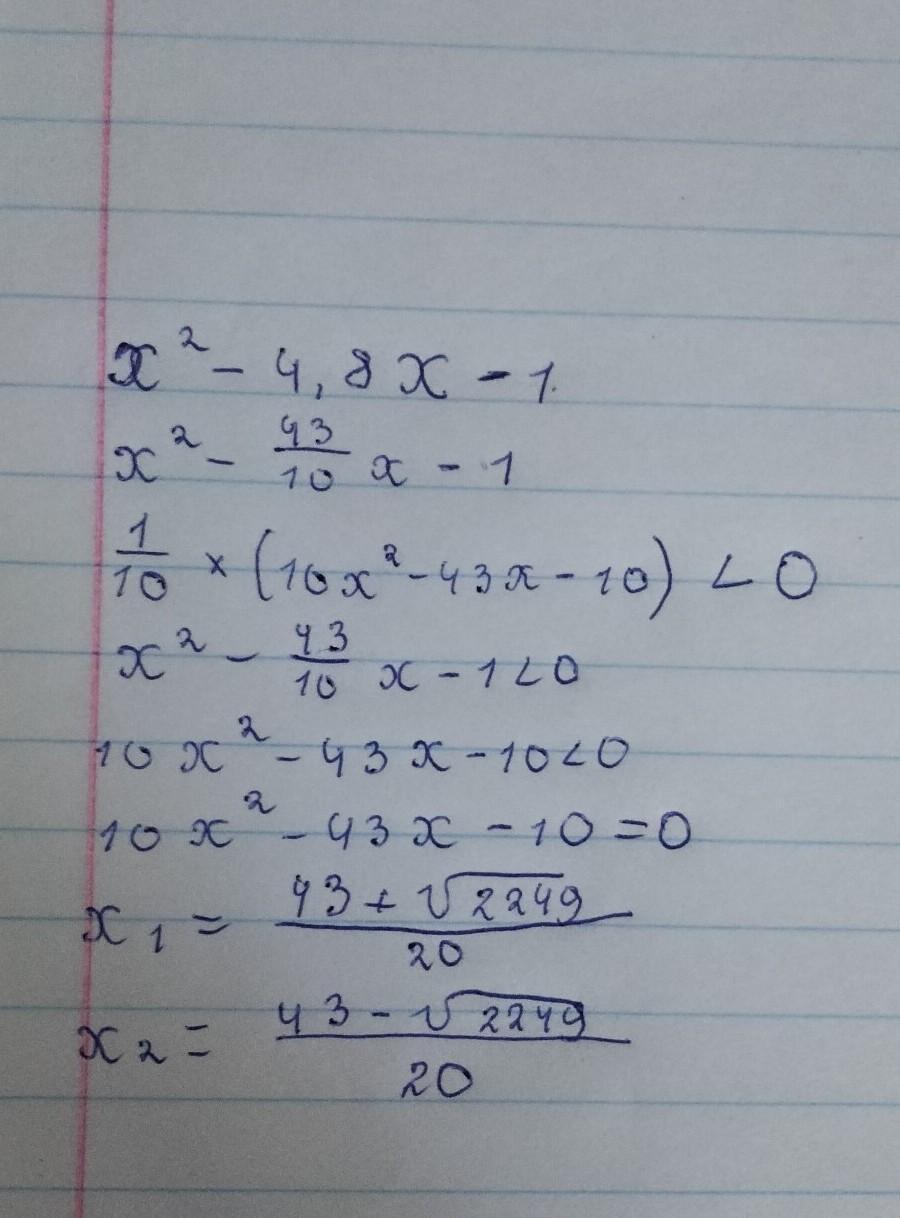 x² - 4,8x - 1
x² - 43/10 x - 1
1/10 × (10x² - 43x - 10) < 0
x² - 43/10 x - 1 < 0
10x² - 43x - 10 < 0
10x² - 43x - 10 = 0
x₁ = (43 + √2249)/20
x₂ = (43 - √2249)/20